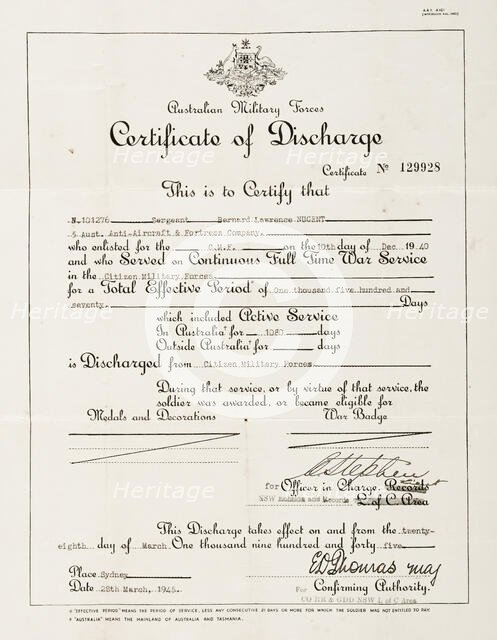 A.A.F. A161
Australian Military Forces
Certificate of Discharge
Certificate No 129928
This is to Certify that
N.101276 Sergeant Bernard Lawrence NUGENT
5 Aust. Anti-Aircraft & Fortress Company.
who enlisted for the C.M.F. on the 10th day of Dec 1940
and who Served on Continuous Full Time War Service
in the Citizen Military Forces
for a Total Effective Period* of One thousand five hundred and
seventy. Days
which included Active Service
In Australia† for 1080 days
Outside Australia† for days
is Discharged from Citizen Military Forces
During that service, or by virtue of that service, the
soldier was awarded, or became eligible for
Medals and Decorations War Badge
C Stephen
for Officer in Charge. Records
NSW Echelon and Records L. of C. Area
This Discharge takes effect on and from the twenty-
eighth day of March. One thousand nine hundred and forty five
Place Sydney
E D Thomas Maj
Date 28th March, 1945. For Confirming Authority.
CO RR & GDD NSW L of C Area
* "EFFECTIVE PERIOD" MEANS THE PERIOD OF SERVICE, LESS ANY CONSECUTIVE 21 DAYS OR MORE FOR WHICH THE SOLDIER WAS NOT ENTITLED TO PAY.
† "AUSTRALIA" MEANS THE MAINLAND OF AUSTRALIA AND TASMANIA.
Heritage
Heritage
Heritage
Heritage
Heritage
Heritage